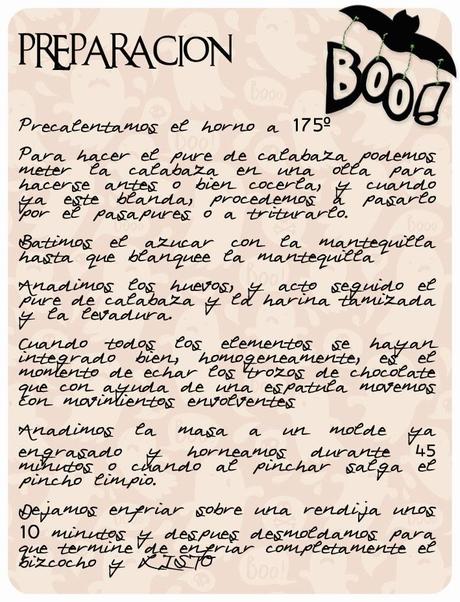 PREPARACION
BOO!
Precalentamos el horno a 175º
Para hacer el pure de calabaza podemos
meter la calabaza en una olla para
hacerse antes o bien cocerla, y cuando
ya este blanda, procedemos a pasarlo
por el pasapures o a triturarlo.
Batimos el azucar con la mantequilla
hasta que blanquee la mantequilla
Anadimos los huevos, y acto seguido el
pure de calabaza y la harina tamizada
y la levadura.
Cuando todos los elementos se hayan
integrado bien, homogeneamente, es el
momento de echar los trozos de chocolate
que con ayuda de una espatula movemos
con movimientos envolventes
Anadimos la masa a un molde ya
engrasado y horneamos durante 45
minutos o cuando al pinchar salga el
pincho limpio.
Dejamos enfriar sobre una rendija unos
10 minutos y despues desmoldamos para
que termine de enfriar completamente el
bizcocho y LISTO